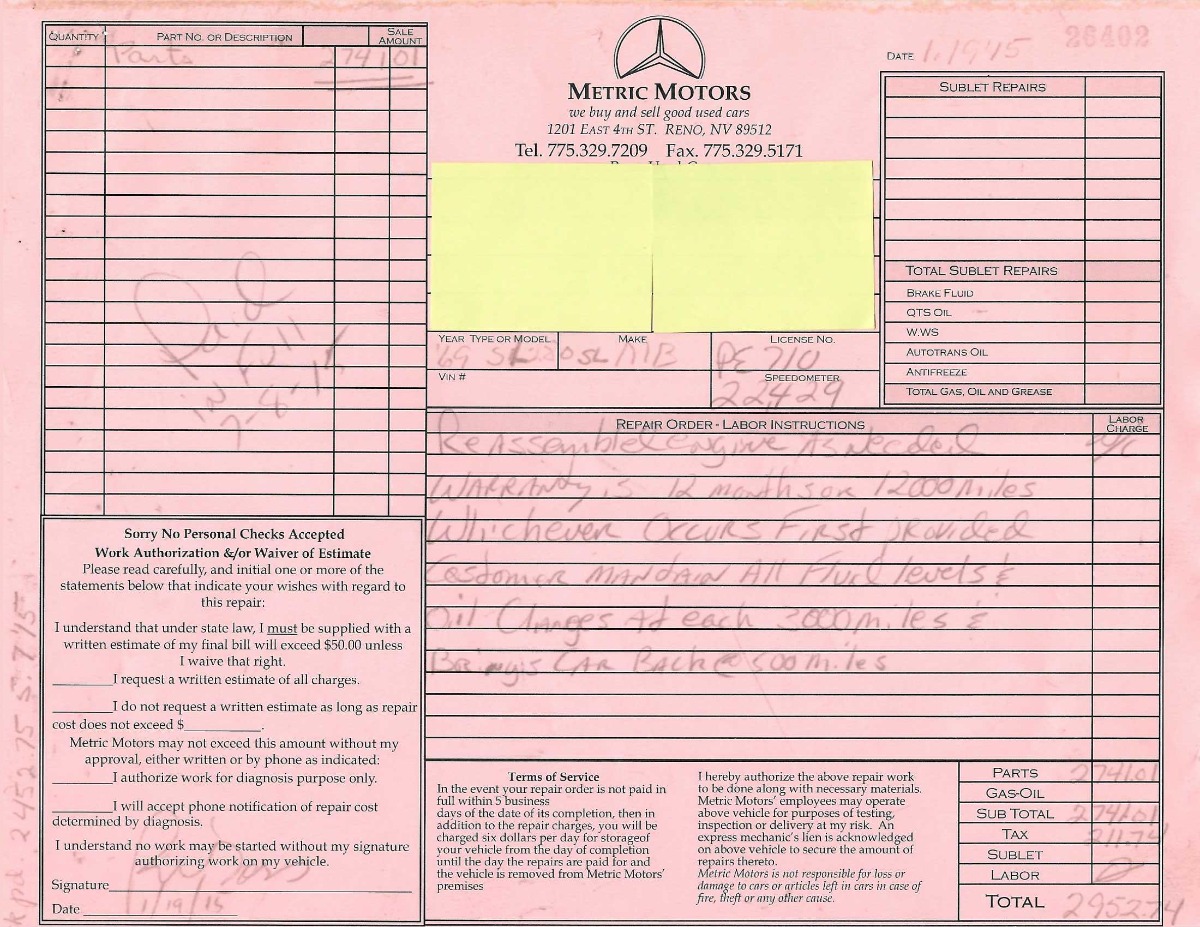 QUANTITY PART NO. OR DESCRIPTION SALE AMOUNT
Parts 2741.01
Paid
in full
7-8-15
METRIC MOTORS
we buy and sell good used cars
1201 EAST 4TH ST. RENO, NV 89512
Tel. 775.329.7209 Fax. 775.329.5171
DATE 1.19.15
26402
SUBLET REPAIRS
TOTAL SUBLET REPAIRS
BRAKE FLUID
QTS OIL
W.WS
AUTOTRANS OIL
ANTIFREEZE
TOTAL GAS, OIL AND GREASE
YEAR TYPE OR MODEL MAKE LICENSE NO.
'69 MB PE 710
VIN # SPEEDOMETER
22429
REPAIR ORDER - LABOR INSTRUCTIONS LABOR CHARGE
ReAssembled engine As Needed
WARRANTY is 12 months or 12000 Miles
Whichever Occurs First provided
All levels &
Oil Changes At each 3000 miles &
CAR BACK @ 500 miles
Sorry No Personal Checks Accepted
Work Authorization &/or Waiver of Estimate
Please read carefully, and initial one or more of the
statements below that indicate your wishes with regard to
this repair:
I understand that under state law, I must be supplied with a
written estimate of my final bill will exceed $50.00 unless
I waive that right.
________I request a written estimate of all charges.
________I do not request a written estimate as long as repair
cost does not exceed $__________.
Metric Motors may not exceed this amount without my
approval, either written or by phone as indicated:
________I authorize work for diagnosis purpose only.
________I will accept phone notification of repair cost
determined by diagnosis.
I understand no work may be started without my signature
authorizing work on my vehicle.
Signature
Date 1/19/15
pd. 2452.75 5.7.15
Terms of Service
In the event your repair order is not paid in
full within 5 business
days of the date of its completion, then in
addition to the repair charges, you will be
charged six dollars per day for storageof
your vehicle from the day of completion
until the day the repairs are paid for and
the vehicle is removed from Metric Motors'
premises
I hereby authorize the above repair work
to be done along with necessary materials.
Metric Motors' employees may operate
above vehicle for purposes of testing,
inspection or delivery at my risk. An
express mechanic's lien is acknowledged
on above vehicle to secure the amount of
repairs thereto.
Metric Motors is not responsible for loss or
damage to cars or articles left in cars in case of
fire, theft or any other cause.
PARTS 2741.01
GAS-OIL
SUB TOTAL 2741.01
TAX 211.74
SUBLET
LABOR 0
TOTAL 2952.74